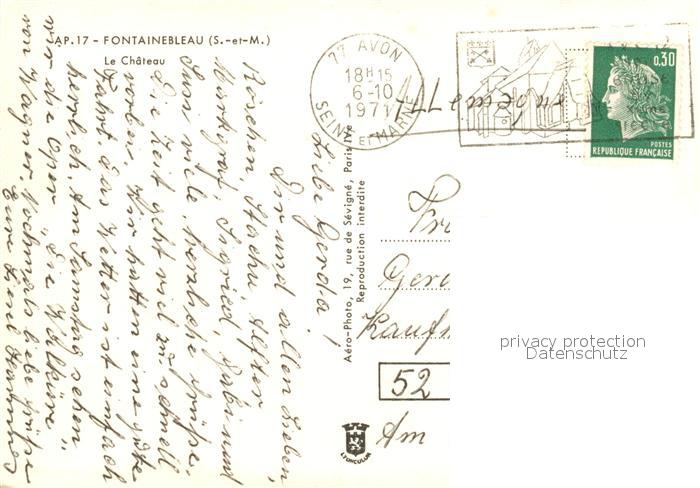 AP.17 - FONTAINEBLEAU (S.-et-M.)
Le Château
77 AVON
18H15
6-10
1971
SEINE ET MARNE
0,30
POSTES
REPUBLIQUE FRANÇAISE
Aéro-Photo, 19, rue de Sévigné, Paris
Reproduction interdite
LYONCOLOR
Liebe Gerda!
Dir und allen Lieben,
Röschen,
Ingried, Gabi und
Susi viele, herzliche Grüße.
Die Zeit geht viel zu schnell
vorbei. Wir hatten eine gute
Fahrt. das Wetter ist einfach
herrlich. Am Samstag sehen
wir die Oper „Die Walküre"
von Wagner. Nochmals liebe Grüße
Eure
Fr
Gerd
Kaufm
52
Am
privacy protection
Datenschutz